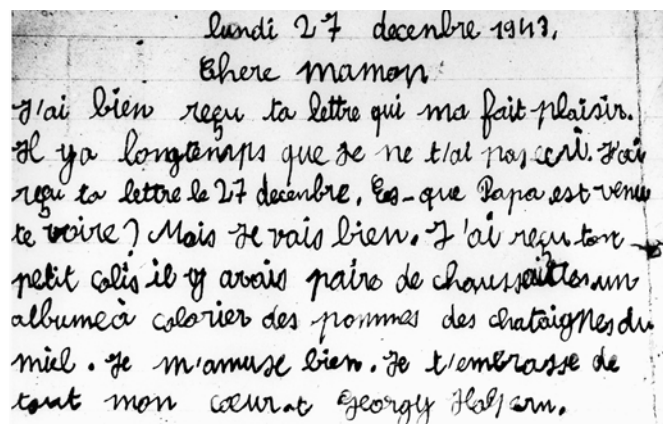 lundi 27 decenbre 1943.
Chere maman
J'ai bien reçu ta lettre qui ma fait plaisir.
Il ya longtemps que je ne t'ai pas ecri. J'ai
reçu ta lettre le 27 decenbre. Es-que Papa est venu
te voire? Mais Je vais bien. J'ai reçu ton
petit colis il y avais paire de chaussettes un
albume à colorier des pommes des chataignes du
miel. Je m'amuse bien. Je t'embrasse de
tout mon cœur Georgy